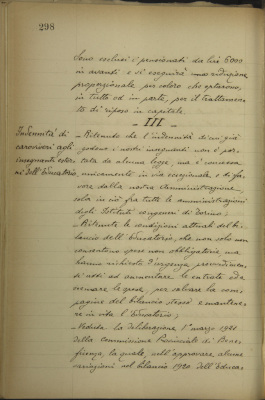 298
Sono esclusi i pensionati da lire 6000
in avanti e si eseguirà una riduzione
proporzionale per coloro che optarono,
in tutto od in parte, per il trattamen
to di riposo in capitale.
III
Indennità di
caroviveri agli
insegnanti ester
ni dell'Educatorio,
- Ritenuto che l'indennità di cui già
godono i nostri insegnanti non è por
tata da alcuna legge, ma è concessa
unicamente in via eccezionale e di fa
vore dalla nostra Amministrazione,
sola in ciò fra tutte le amministrazioni
degli Istituti congeneri di Torino;
- Ritenute le condizioni attuali del bi
lancio dell'Educatorio, che non solo non
consentono spese non obbligatorie, ma
hanno richiesto d'urgenza provvedimen
ti atti ad aumentare le entrate ed a
scemare le spese, per salvare la com
pagine del bilancio stesso e mantene
re in vita l'Educatorio;
- Veduta la deliberazione 1° marzo 1921
della Commissione Provinciale di Bene
ficenza, la quale, nell'approvare alcune
variazioni nel bilancio 1920 dell'Educa